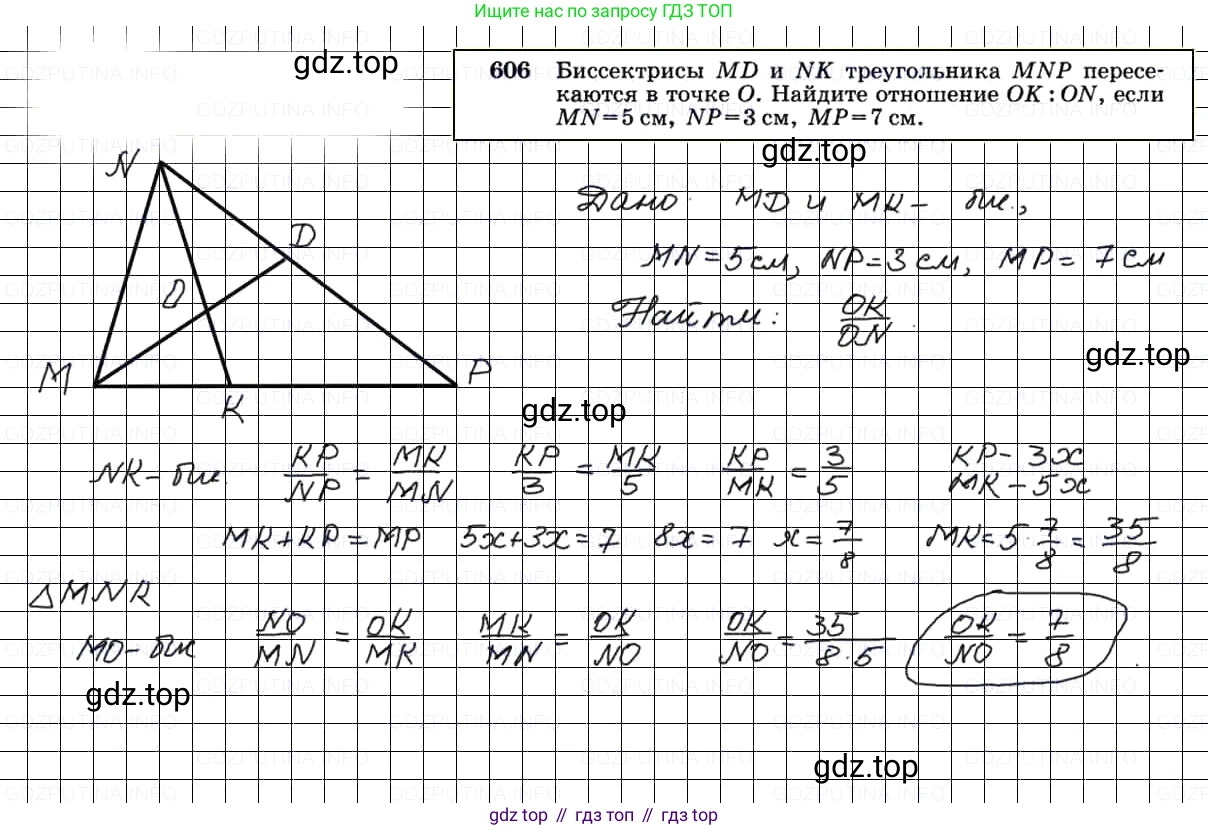 Ищите нас по запросу ГДЗ ТОП
gdz.top
606 Биссектрисы MD и NK треугольника MNP пересе-
каются в точке O. Найдите отношение OK : ON, если
MN = 5 см, NP = 3 см, MP = 7 см.
gdz.top
N
D
O
M
P
K
Дано: MD и MK – бис.,
MN = 5 см, NP = 3 см, MP = 7 см
Найти: OK/ON.
gdz.top
gdz.top
NK – бис. KP/NP = MK/MN KP/3 = MK/5 KP/MK = 3/5 KP – 3x
MK – 5x
MK + KP = MP 5x + 3x = 7 8x = 7 x = 7/8 MK = 5 · 7/8 = 35/8
△MNK
MO – бис NO/MN = OK/MK MK/MN = OK/NO OK/NO = 35/8·5 OK/NO = 7/8.
gdz.top
gdz.top
gdz top // гдз топ // гдз top
GDZPUTINA.INFO